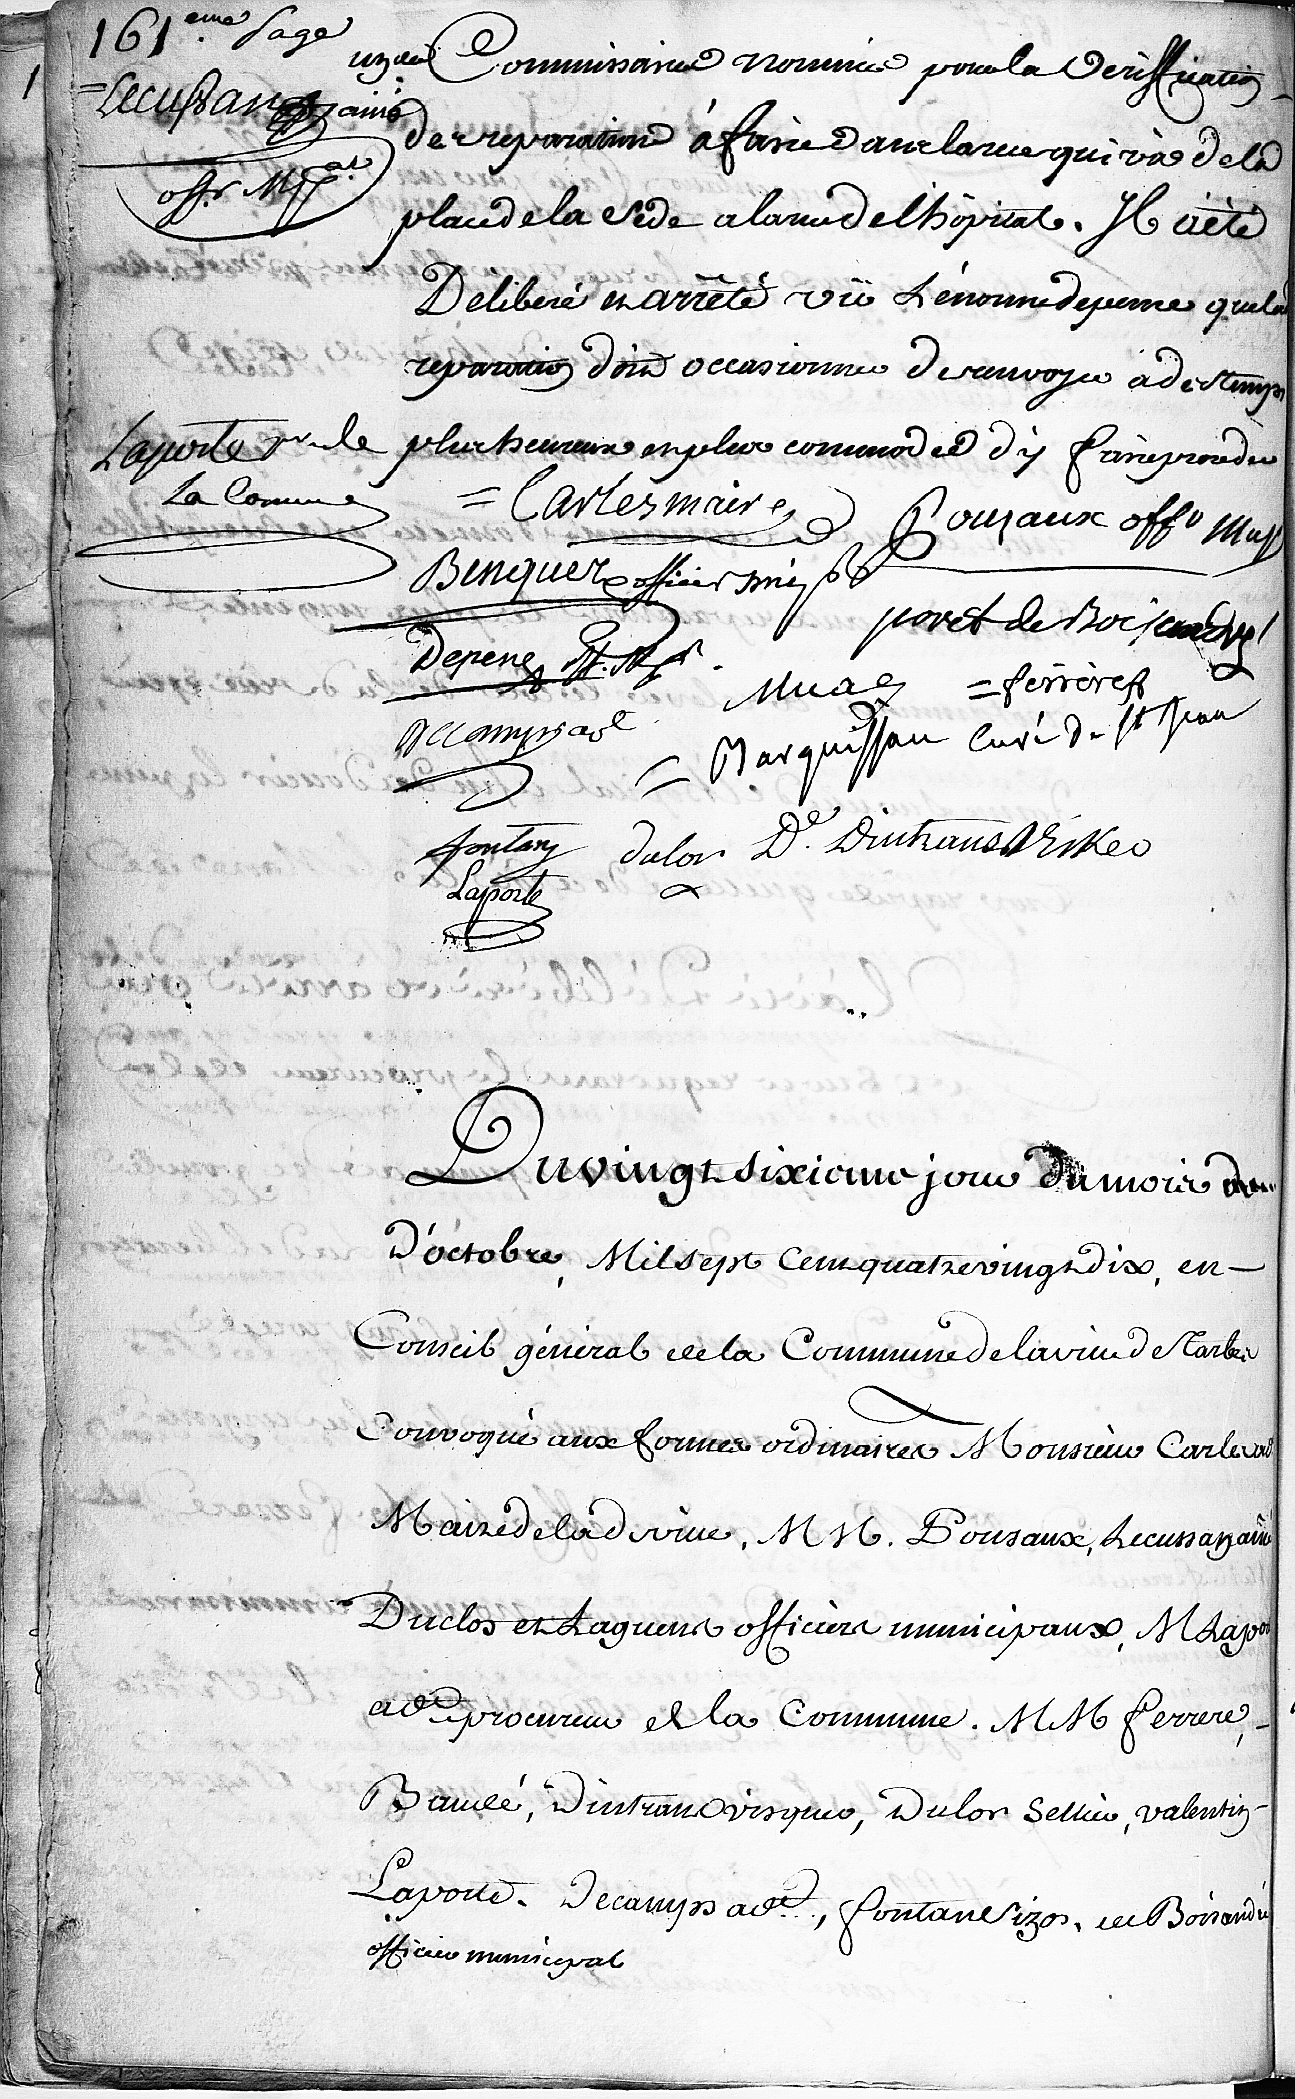 161eme page
Commissaires nommés pour la Veriffication
Lecussan ainé
des reparations à faire dans la rue qui và de la
off.r M.pal
place de la Sède a la rue de lhôpital. Il a été
Déliberé et arrêté vû L'énorme depense que la
reparation doit occasionner de renvoyer à des temps
Laporte pr. de
plus heureux et plus commodes d'y faire proceder
La Commune
= Carles maire
Pouzaux offr Mupl
Benquez officier
poret de Boisjean
Depene off. Mpl.
= ferrere
Decamps ade
= Barquissau Curé de St Jean
fontan dulor De. Dintrans Viskeo
Laporte
Du vingt sixieme jour du mois
D'octobre, Mil sept Cent quatre vingt dix, en
Conseil général de la Commune de la ville de Tarbes
Convoqué aux formes ordinaires Monsieur Carles
Maire de lad. ville, M M. Pouzaux, Lecussan ainé
Duclos et Laguens officiers municipaux, M Lapor
ade procureur de la Commune. M M ferrere,
Dintrans visqueo, Dulor Sellier, valentin
Laporte. Decamps ade., fontan Sizos, et Boisandié
officier municipal